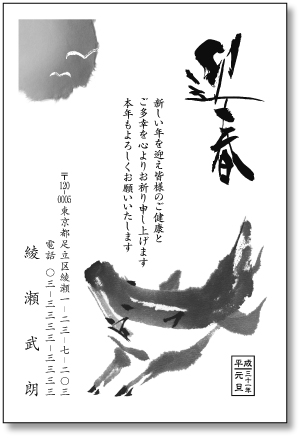 迎春
新しい年を迎え皆様のご健康と
ご多幸を心よりお祈り申し上げます
本年もよろしくお願いいたします
〒120-0005 東京都足立区綾瀬一-二三-七-二〇三
電話 〇三-三三三三-三三三三
綾瀬武朗
平成三十一年
元旦